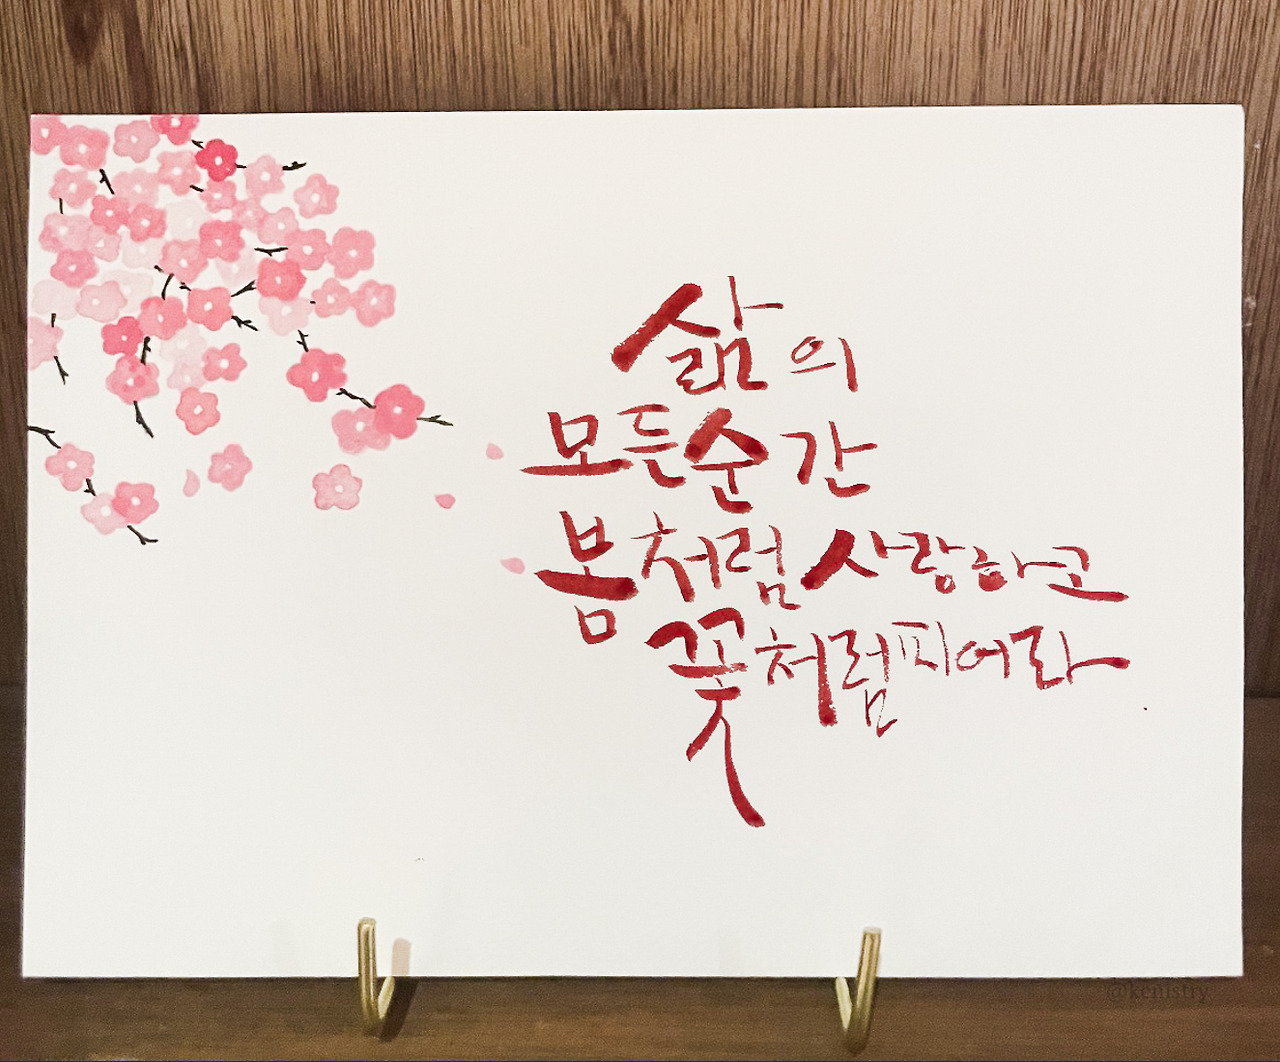 삶의
모든순간
봄처럼사랑하고
꽃처럼피어라
@kenistry